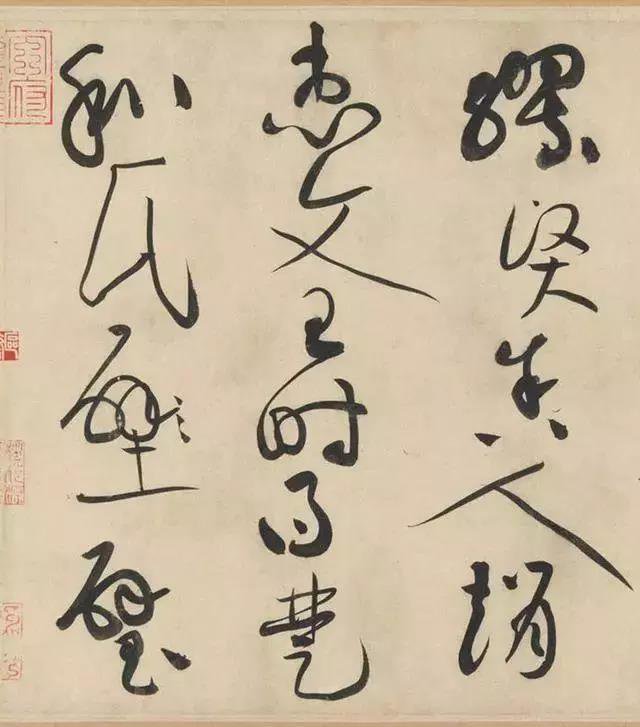 繆賢舍人趙
惠文王時得楚
和氏壁璧